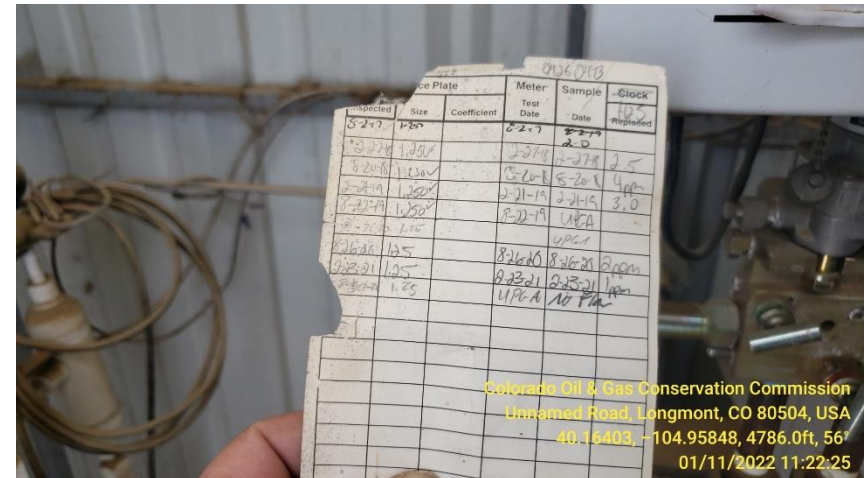 ce Plate Meter Sample Clock
Inspected Size Coefficient Test Date Date H2S Replaced
8-2-17 1.250 8-2-17 8-2-17
2.0
2-27-18 1.250 2-27-18 2-27-18 2.5
8-20-18 1.250 8-20-18 8-20-18 4ppm
2-21-19 1.250 2-21-19 2-21-19 3.0
8-22-19 1.250 8-22-19 UPGA
1.25 UPGA
8-26-20 1.25 8-26-20 8-26-20 2ppm
2-23-21 1.25 2-23-21 2-23-21 1ppm
1.25 UPGA NO Flow
Colorado Oil & Gas Conservation Commission
Unnamed Road, Longmont, CO 80504, USA
40.16403, -104.95848, 4786.0ft, 56°
01/11/2022 11:22:25